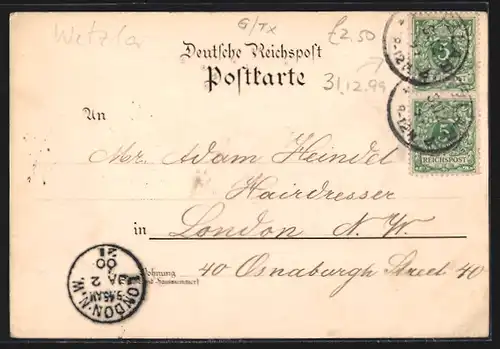 Wetzlar
G/Tx
£2.50
Deutsche Reichspost
Postkarte
31.12.99
5
5
REICHSPOST
An
Mr. Adam Heindel
Hairdresser
in London N.W.
Wohnung
40 Osnaburgh Street 40
LONDON.N.W.
9.45AM
JA 2
00
21